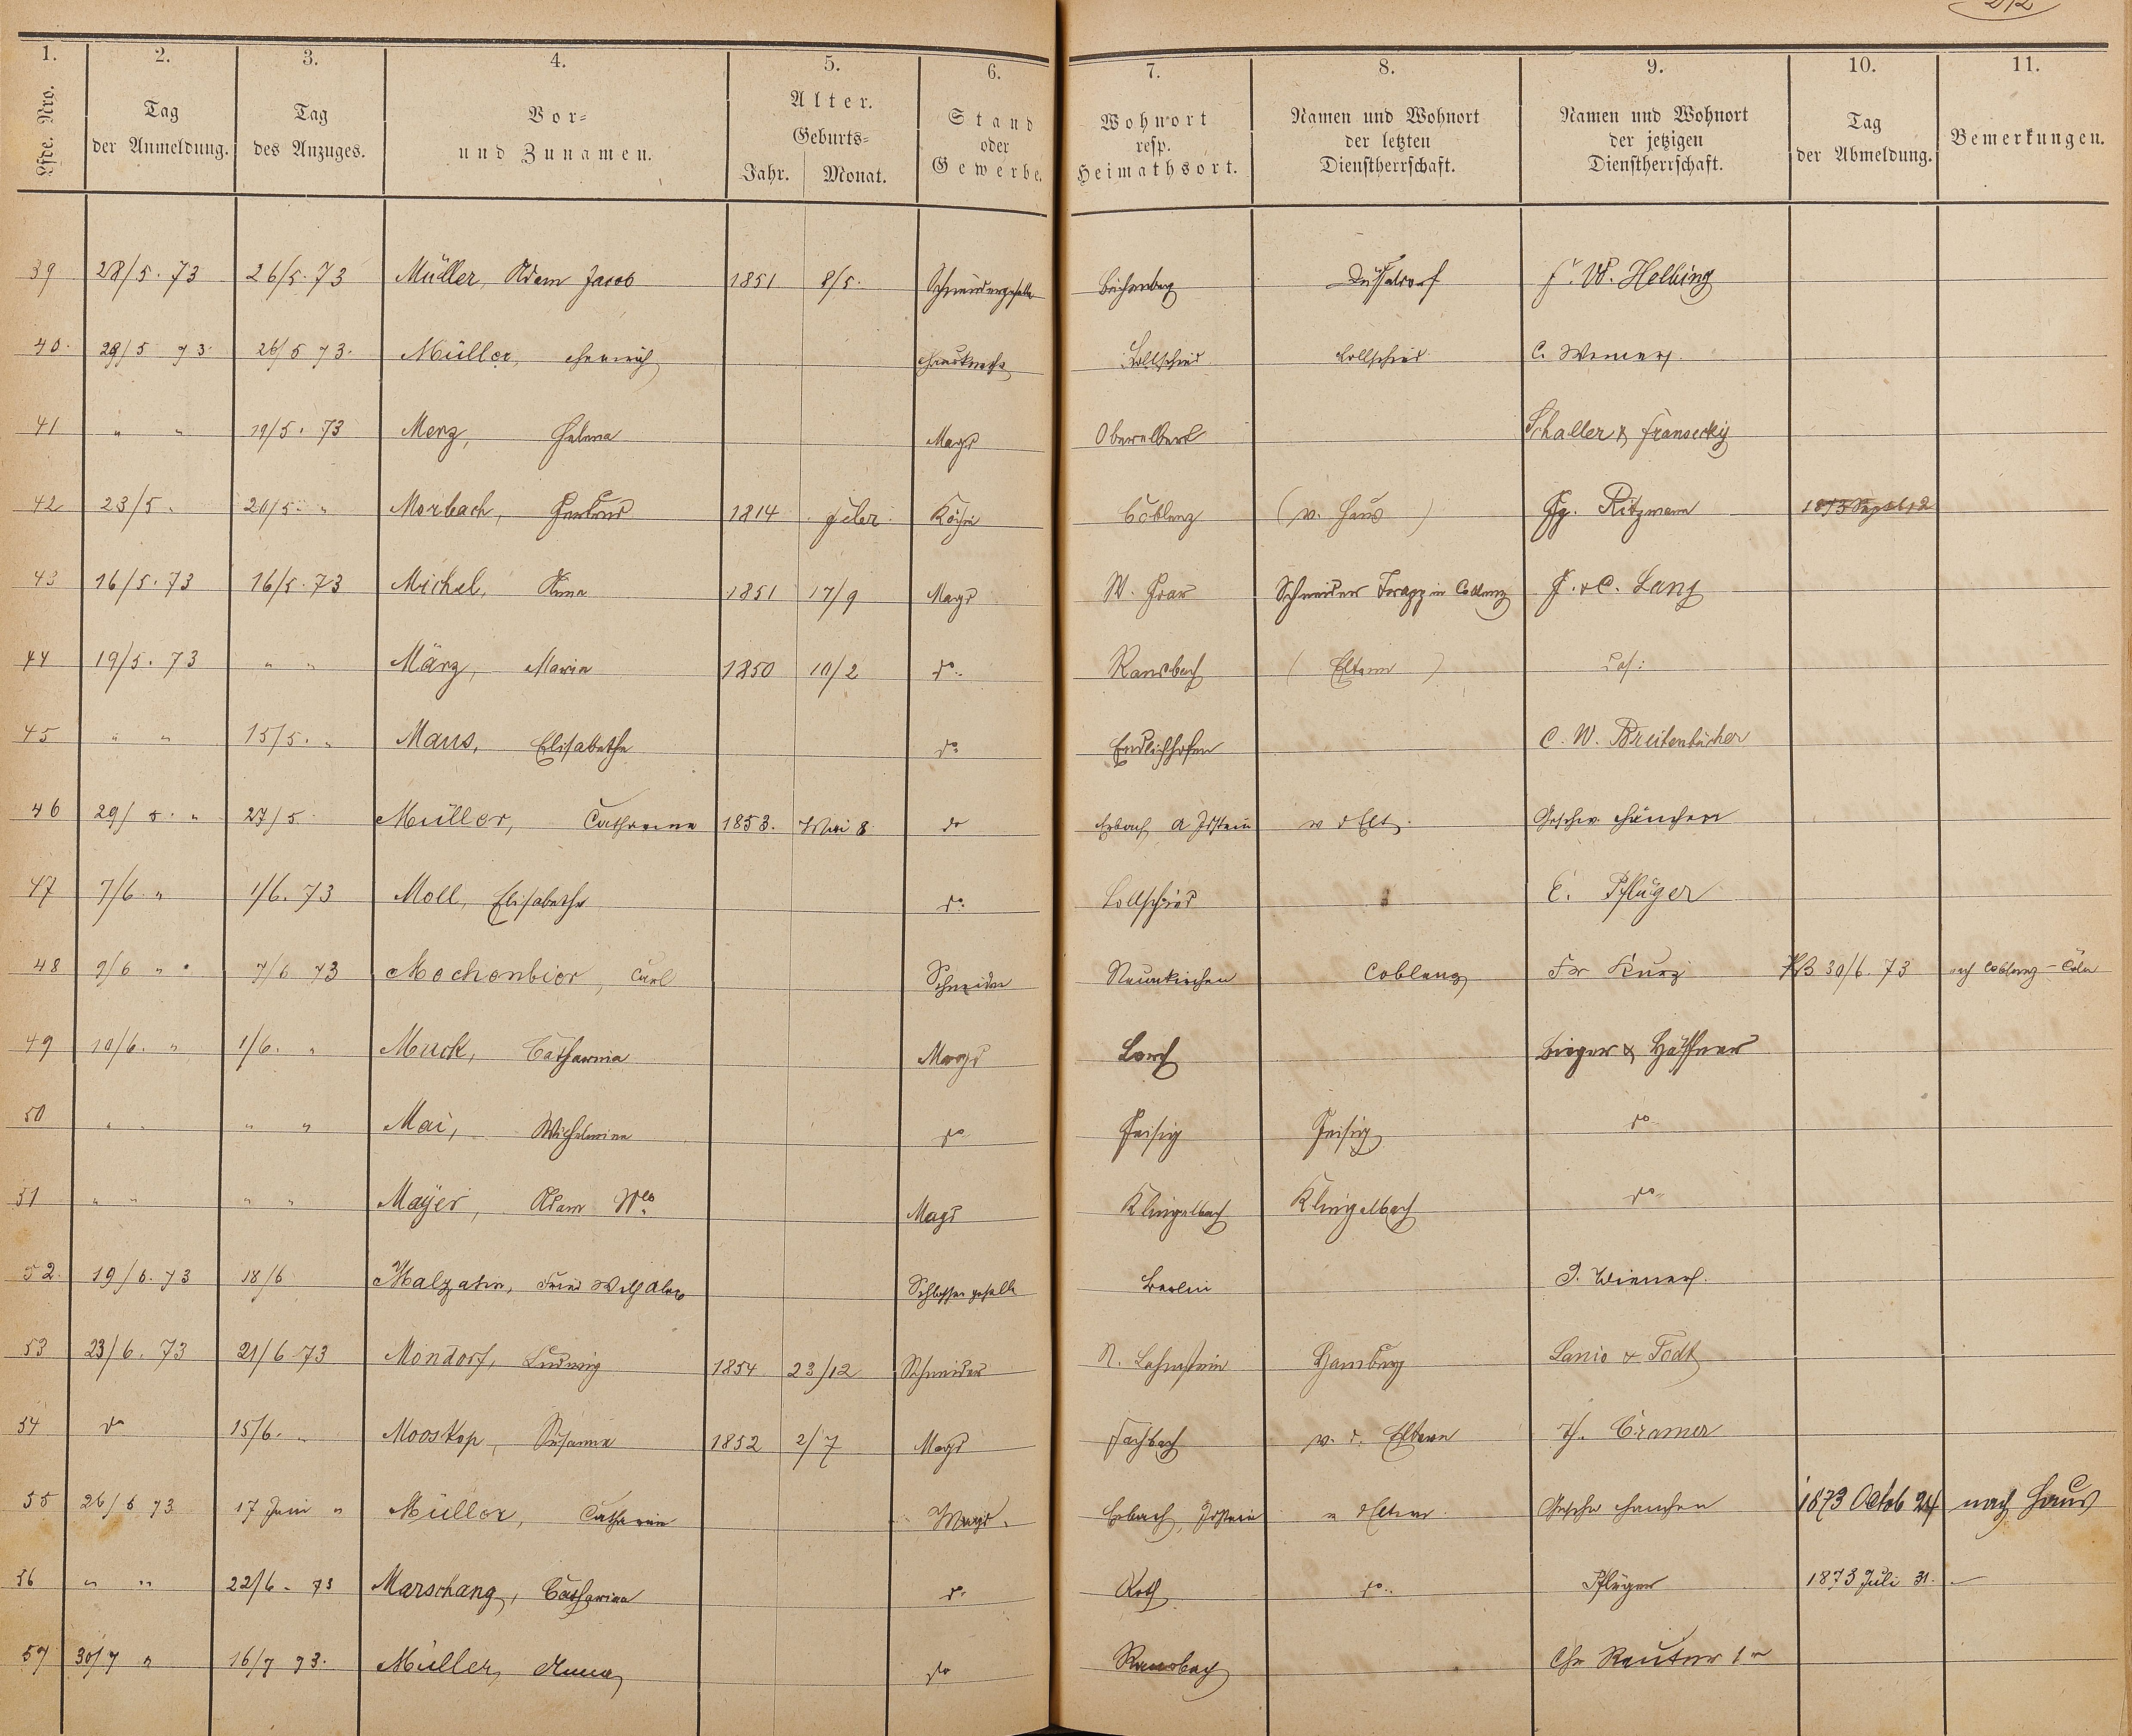 212
1. 2. 3. 4. 5. 6. 7. 8. 9. 10. 11.
Lfde. Nro. Tag der Anmeldung. Tag des Anzuges. Vor- und Zunamen. Alter. Geburts- Jahr. Monat. Stand oder Gewerbe. Wohnort resp. Heimathsort. Namen und Wohnort der letzten Dienstherrschaft. Namen und Wohnort der jetzigen Dienstherrschaft. Tag der Abmeldung. Bemerkungen.
39 28/5. 73 26/5. 73 Müller, Adam Jacob 1851 8/5. Schneidergeselle Düsseldorf F. W. Helbing
40. 29/5 73. 26/5 73. Müller, Heinrich Hausknecht Lollschied Lollschied C. Wiener
41 " " 19/5. 73 Merz, Helena Magd Oberelbert Schaller & Fransecky
42 23/5. 20/5. " Morbach, Gertrud 1814 Köchin Coblenz (v. Haus) Fg. Ritzmann 1873 Septbr 2
43 16/5. 73 16/5. 73 Michel, Anna 1851 17/9 Magd Schneider Trapp in Coblenz F. & C. Lang
44 19/5. 73 " " März, Maria 1850 10/2 do. Ransbach (Eltern)
45 " " 15/5. " Maus, Elisabethe do. Endlichhofen C. W. Breitenbücher
46 29/5. " 27/5. Müller, Catharina 1853. Mai 8 do Erbach A Idstein v d Elt. Geschw. Hänchen
47 7/6. " 1/6. 73 Moll, Elisabethe do. Lollschied C. Pflüger
48 9/6 " " 7/6 73 Mochenbior, Carl Schneider Neunkirchen Coblenz Fr Kurz 30/6. 73 nach Coblenz - Cöln
49 10/6. " 1/6. " Muck, Catharina Magd Lorch Bieger & Häffner
50 " " " " Mai, Wilhelmine do. Geisig Geisig do.
51 " " " " Mayer, Adam Wwe Magd Klingelbach Klingelbach do.
52. 19/6. 73 18/6 Malzahn, Fried Wilh Schlossergeselle Berlin J. Wiener
53 23/6. 73 21/6 73 Mondorf, Ludwig 1854 23/12 Schneider N. Lahnstein Homburg Lanio & Todt
54 do 15/6. " Mooskop, Susanna 1852 2/7 Magd Fachbach v. d. Eltern Th. Cramer
55 26/6 73 17 Juni " Müller, Catharin Magd. Erbach, Idstein v d Eltern Geschw Hänchen 1873 Octob 24 nach Haus
56 " " 22/6. 73 Marschang, Catharina do. Roth do. Pflüger 1873 Juli 31. —
57 30/7 " 16/7 73. Müller, Anna do Ransbach Chr Reuter 1r